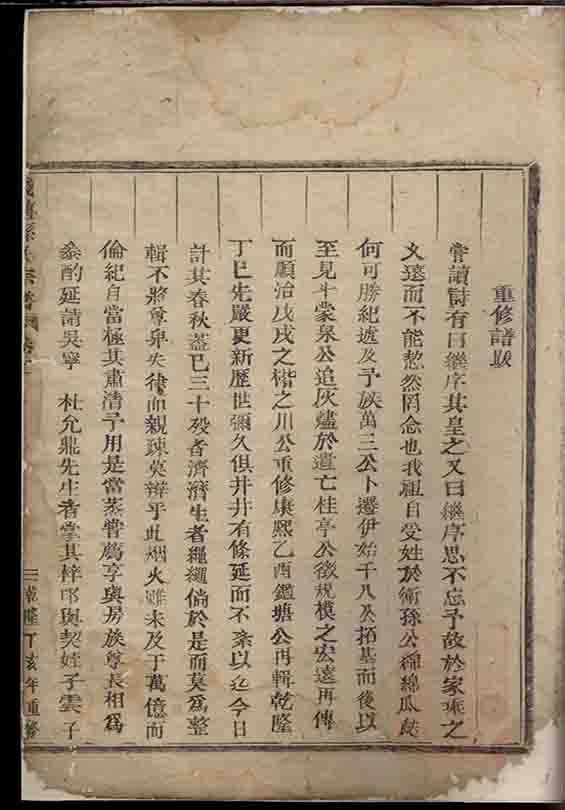 重修譜跋
嘗讀詩有曰繼序其皇之又曰繼序思不忘予故於家乘之
久遠而不能恝然罔念也我祖自受姓於衛孫公綿綿瓜瓞
何可勝紀述及予族萬三公卜遷伊始千八公拓基而後以
至見斗蒙泉公追灰燼於遺亡桂亭公徵規模之宏遠再傳
而順治戊戌之楷之川公重修康熙乙酉鑑塘公再輯乾隆
丁巳先嚴更新歷世彌久俱井井有條延而不紊以迄今日
計其春秋蓋已三十歿者濟濟生者繩繩倘於是而莫爲整
輯不將尊卑失律而親疎莫辨乎此烟火雖未及于萬億而
倫紀自當極其肅清予用是當蒸嘗薦享與房族尊長相爲
叅酌延請吳寧 杜允鼎先生者掌其梓邛與契姪子雲子
孫氏宗譜
乾隆丁亥年重修